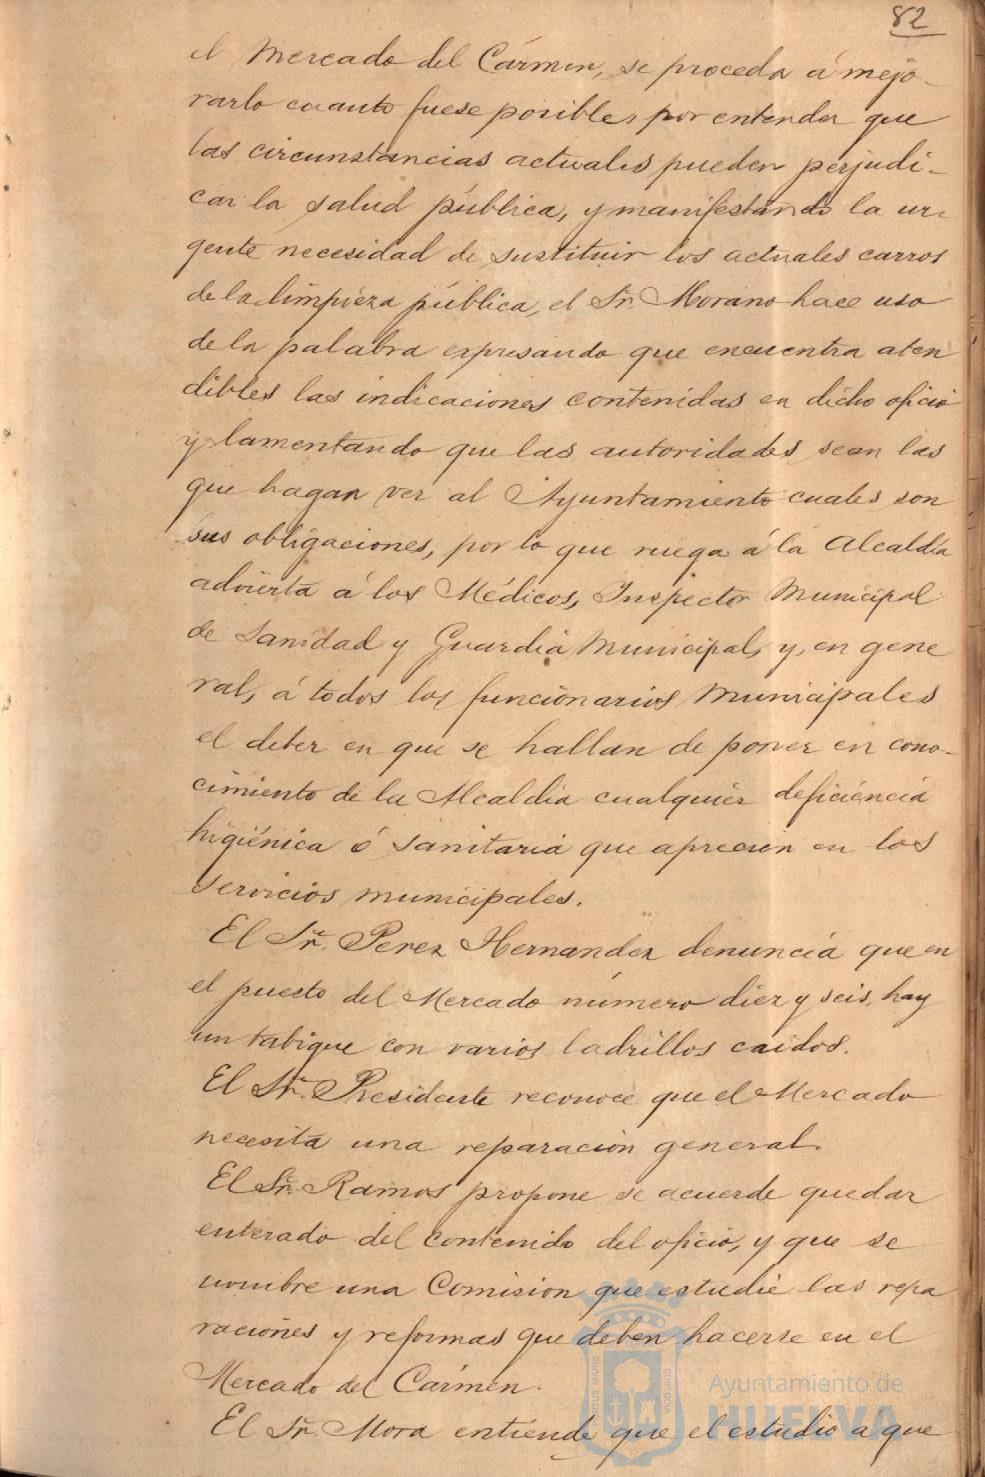 82
el Mercado del Cármen, se proceda á mejo-
rarlo cuanto fuese posible, por entender que
las circunstancias actuales pueden perjudi-
car la salud pública, y manifestando la ur-
gente necesidad de sustituir los actuales carros
de la limpieza pública, el Sr. Morano hace uso
de la palabra expresando que encuentra aten
dibles las indicaciones contenidas en dicho oficio
y lamentando que las autoridades sean las
que hagan ver al Ayuntamiento cuales son
sus obligaciones, por lo que ruega á la Alcaldía
advierta á los Médicos, Inspector Municipal
de Sanidad y Guardia Municipal, y, en gene
ral, á todos los funcionarios municipales
el deber en que se hallan de poner en cono-
cimiento de la Alcaldia cualquier deficiencia
higiénica ó sanitaria que aprecien en los
servicios municipales.
El Sr. Perez Hernandez denuncia que en
el puesto del Mercado número diez y seis, hay
un tabique con varios ladrillos caidos.
El Sr. Presidente reconoce que el Mercado
necesita una reparación general.
El Sr. Ramos propone se acuerde quedar
enterado del contenido del oficio, y que se
nombre una Comision que estudie las repa
raciones y reformas que deben hacerse en el
Mercado del Cármen.
El Sr. Mora entiende que el estudio a que
Ayuntamiento de
HUELVA